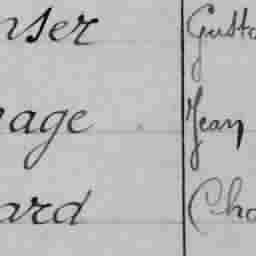 nser Gusta
nage Jean
ard Cha